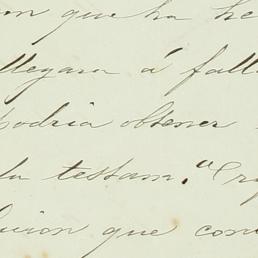 que ha he
llegara á fall
podria obtener
la testam.ª
que con